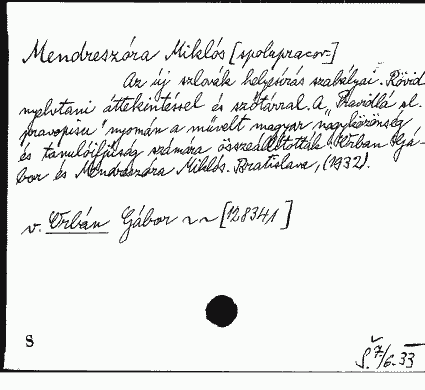 Mendreszóra Miklós [spolupracov.]
Az új szlovák helyesírás szabályai. Rövid
nyelvtani áttekintéssel és szótárral. A „Pravidlá sl.
pravopisu" nyomán a művelt magyar nagyközönség
és tanulóifjúság számára összeállították Orbán Gá-
bor és Mendreszóra Miklós. Bratislava, (1932).
v. Orbán Gábor ~ ~ [12834/1]
8
Š. 7/6-33